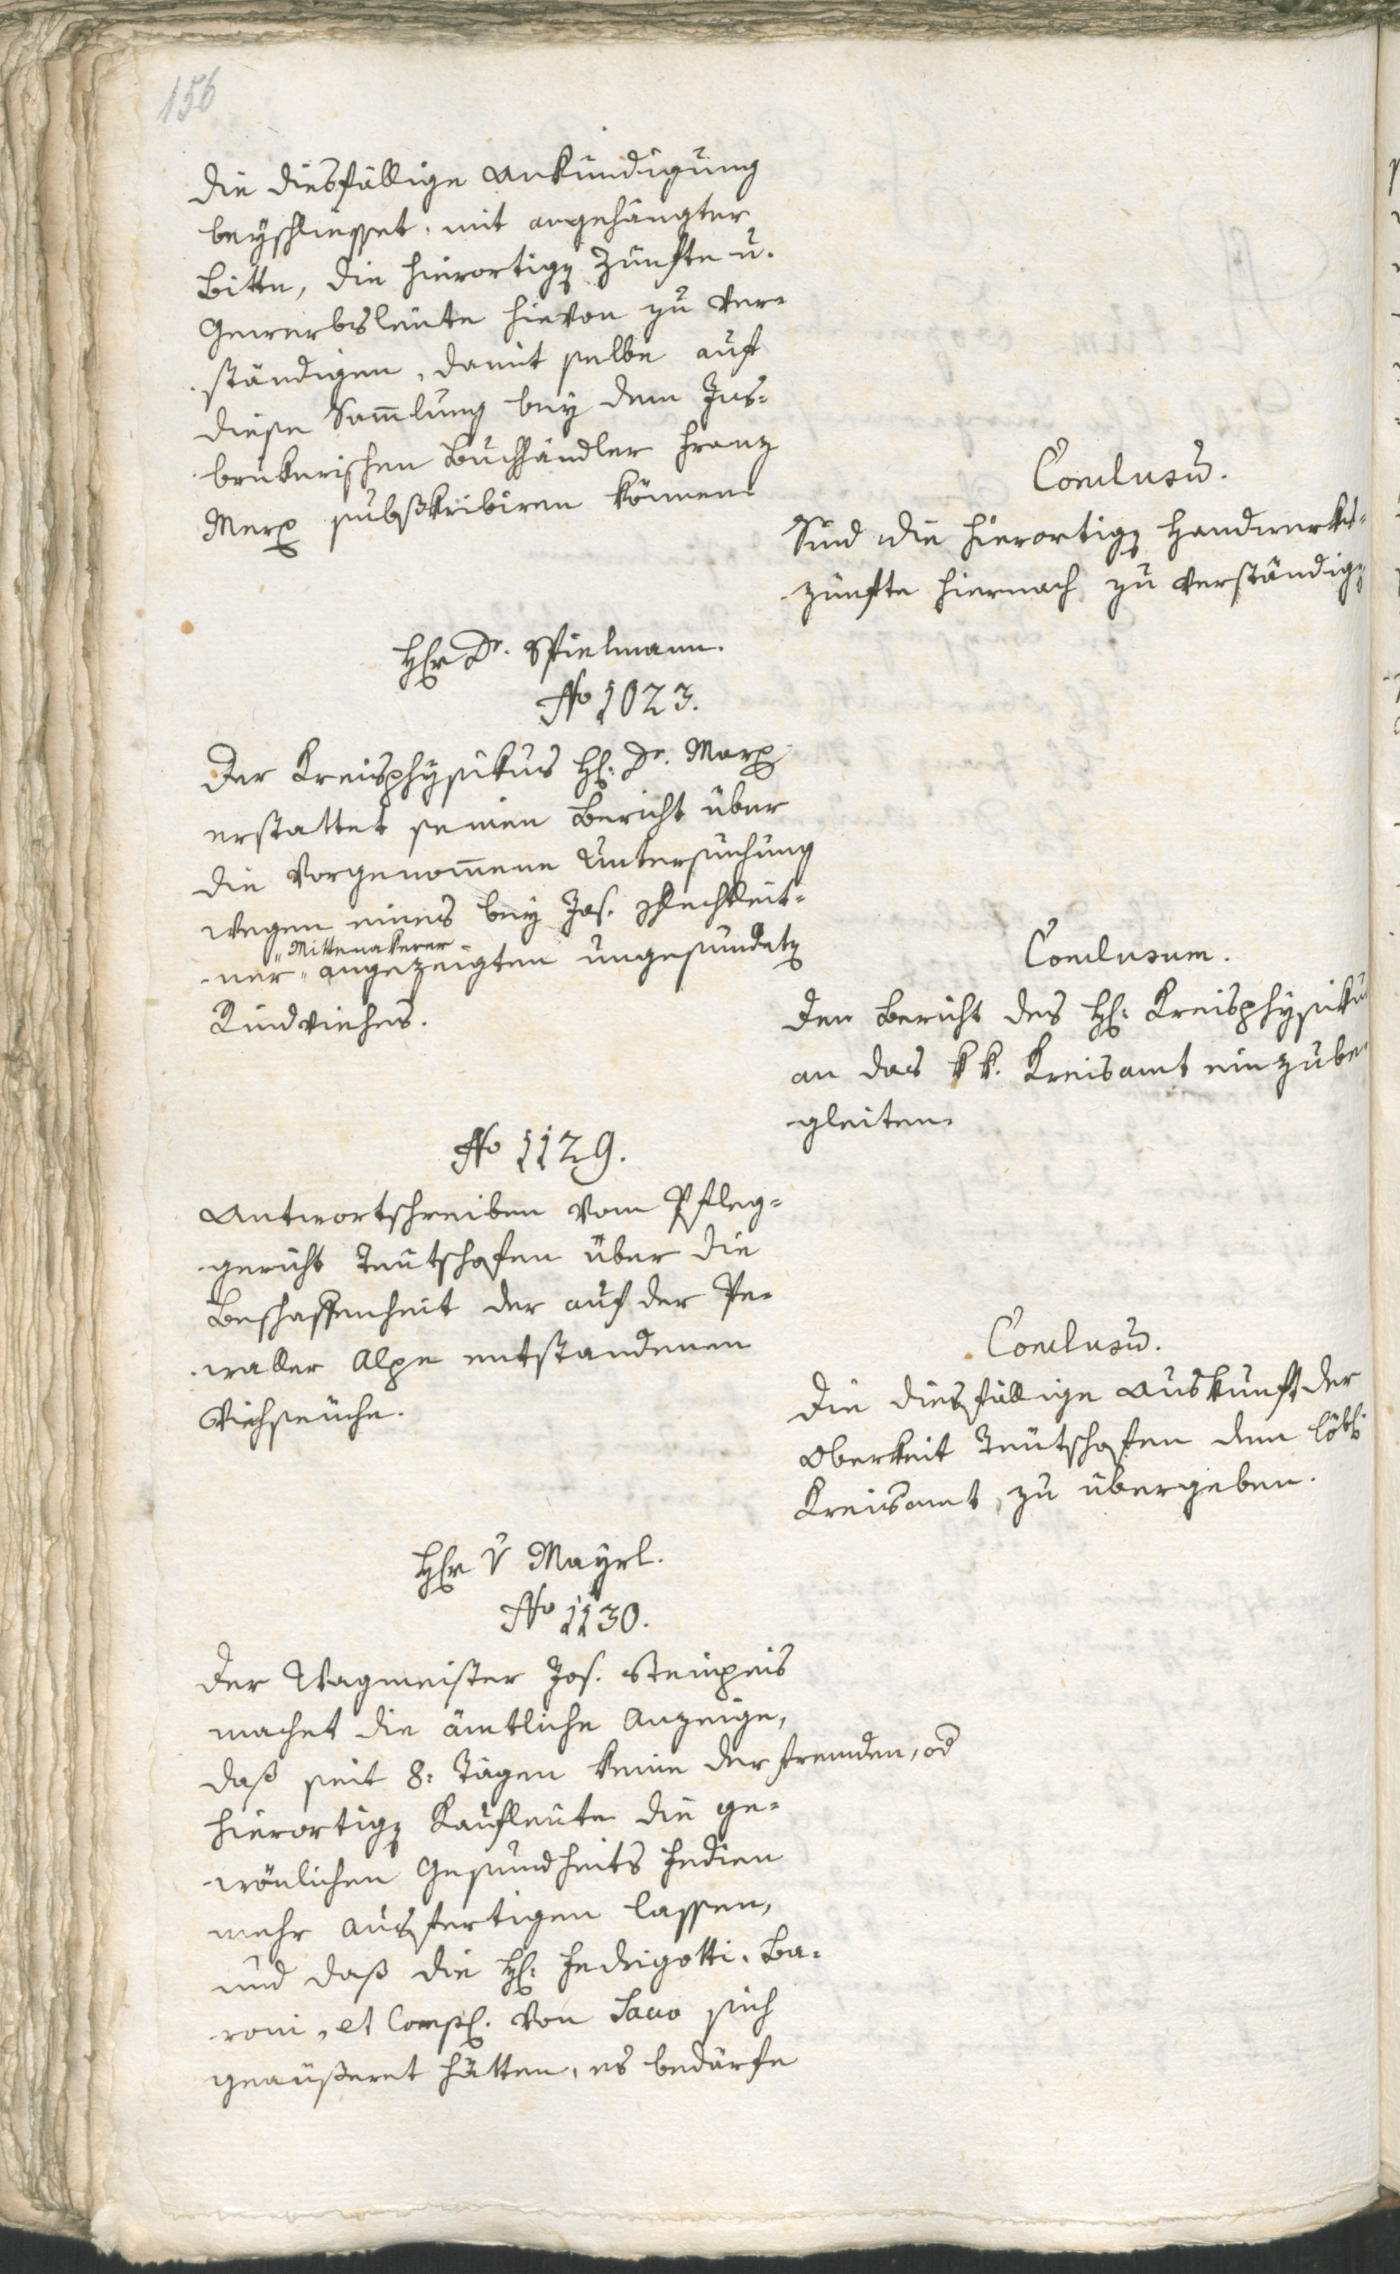 156
die diesfällige Ankündigung
beyschliesset, mit angehängter
Bitte, die hierortigen Zünfte u.
Gewerbsleute hievon zu ver-
ständigen, damit selbe auf
diese Sam̄lung bey dem Ins-
brukerischen Buchhändler Franz
Merx subskribiren können.
Conclusū.
Sind die hierortigen Handwerks-
zünfte hiernach zu verständigen
Hr Dr. Spielmann.
No 1023.
Der Kreisphysikus H: Dr. Marx
erstattet seinen Bericht über
die vorgenom̄ene Untersuchung
wegen eines bey Jos. Plechleit-
Mittenakerer
ner angezeigten ungesundeten
Rindviehes.
Conclusum.
Den Bericht des H: Kreisphysikus
an das k k. Kreisamt einzube-
gleiten.
No 1129.
Antwortschreiben vom Pfleg-
gericht Teutschofen über die
Beschaffenheit der auf der Pe-
waller Alpe entstandenen
Viehseuche.
Conclusū.
Die diesfällige Auskunft der
Oberkeit Teutschofen dem löbl:
Kreisamt zu übergeben.
Hr V Mayrl.
No 1130.
Der Wagmeister Jos. Steinpeis
machet die ämtliche Anzeige,
daß seit 8: Tägen keine der fremden, od
hierortigen Kaufleute die ge-
wönlichen Gesundheits Fedien
mehr ausfertigen lassen,
und daß die H: Fedrigotti, Ba-
roni, et Comp. von Sacco sich
geäußeret hätten, es bedärfe